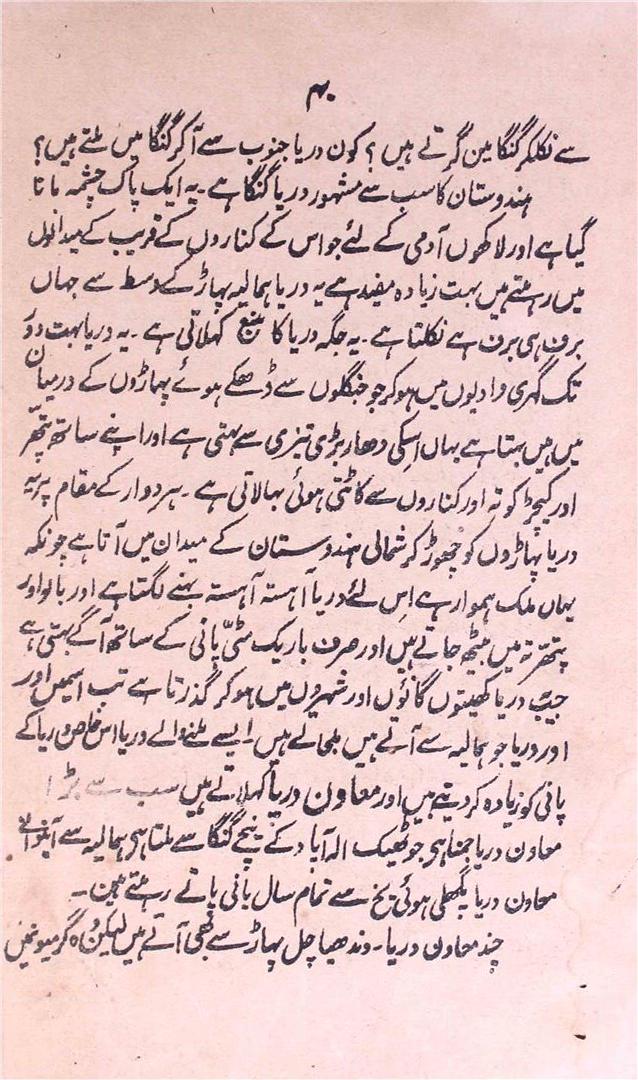 ۴۰
سے نکلکر گنگا مین گرتے ہیں؟ کون دریا جنوب سے آکر گنگا میں ملتے ہیں؟
ہندوستان کا سب سے مشہور دریا گنگا ہے۔ یہ ایک پاک چشمہ مانا
گیا ہے اور لاکھوں آدمی کے لئے جو اس کے کناروں کے قریب کے میدانوں
میں رہتے ہیں بہت زیادہ مفید ہے یہ دریا ہمالیہ پہاڑ کے وسط سے جہاں
برف ہی برف ہے نکلتا ہے۔ یہ جگہ دریا کا منبع کہلاتی ہے۔ یہ دریا بہت دور
تک گہری وادیوں میں ہو کر جو جنگلوں سے ڈھکے ہوئے پہاڑوں کے درمیان
میں ہیں بہتا ہے یہاں اسکی دھار بڑی تیزی سے بہتی ہے اور اپنے ساتھ پتھّر
اور کیچڑ کو تہ اور کناروں سے کاٹتی ہوئی بہا لاتی ہے۔ ہردوار کے مقام پر یہ
دریا پہاڑوں کو چھوڑ کر شمالی ہندوستان کے میدان میں آتا ہے چونکہ
یہاں ملک ہموار ہے اِس لئے دریا آہستہ آہستہ بہنے لگتا ہے اور بالو اور
پتھّر تہ میں بیٹھ جاتے ہیں اور صرف باریک مٹّی پانی کے ساتھ آگے بہتی ہے
جب دریا کھیتوں گانؤں اور شہروں میں ہو کر گذرتا ہے تب اسمیں اور
اور دریا جو ہمالیہ سے آتے ہیں ملجاتے ہیں۔ ایسے ملنے والے دریا اس خاص دریا کے
پانی کو زیادہ کر دیتے ہیں اور معاون دریا کہلاتے ہیں سب سے بڑا
معاون دریا جمنا ہی جو ٹھیک الہ آباد کے نیچے گنگا سے ملتا ہی ہمالیہ سے آنیوالے
معاون دریا پگھلی ہوئی یخ سے تمام سال پانی پاتے رہتے ہین۔
چند معاون دریا۔ وندھیاچل پہاڑ سے بھی آتے ہیں لیکن وُہ گرمیونمیں